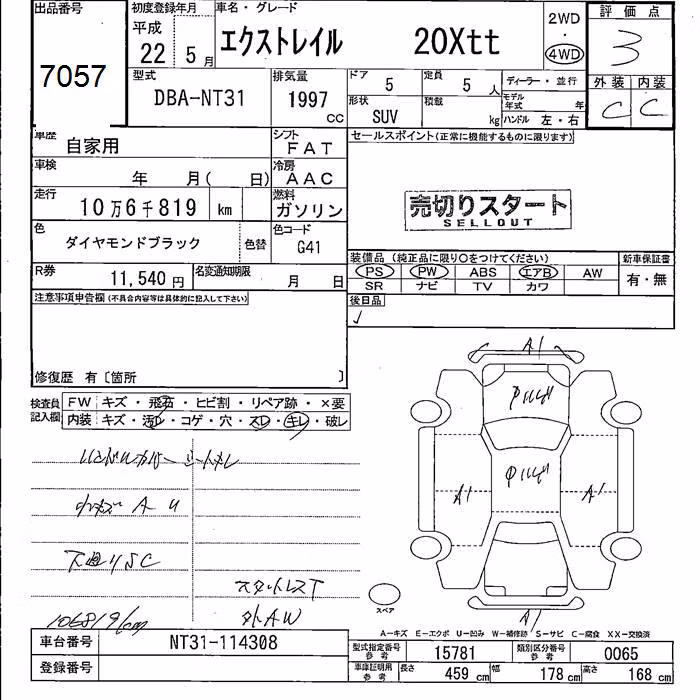 出品番号
7057
初度登録年月
平成
22 5月
車名・グレード
エクストレイル 20Xtt
2WD
・
4WD
評価点
3
型式
DBA-NT31
排気量
1997 cc
ドア 5
定員 5人
形状 SUV
積載 kg
ディーラー・並行
モデル年式 年
ハンドル 左・右
外装 内装
C C
車歴 自家用
シフト FAT
車検 年 月( 日)
冷房 AAC
走行 10万6千819 km
燃料 ガソリン
色 ダイヤモンドブラック 色替
色コード G41
R券 11,540円
名変通知期限 月 日
セールスポイント(正常に機能するものに限ります)
売切りスタート
SELLOUT
装備品(純正品に限り○をつけてください)
新車保証書
PS PW ABS エアB AW
SR ナビ TV カワ
有・無
後日品
注意事項申告欄(不具合内容等は具体的に記入して下さい)
修復歴 有〔箇所 〕
検査員記入欄
FW キズ・飛石・ヒビ割・リペア跡・×要
内装 キズ・汚レ・コゲ・穴・スレ・キレ・破レ
A U
スタットレスT
外AW
106819km
A1
A1
A1
A1
スペア
A-キズ E-エクボ U-凹み W-補修跡 S-サビ C-腐食 XX-交換済
車台番号 NT31-114308
登録番号
型式指定番号 参考 15781
類別区分番号 参考 0065
車庫証明用 参考 長さ 459 cm 幅 178 cm 高さ 168 cm